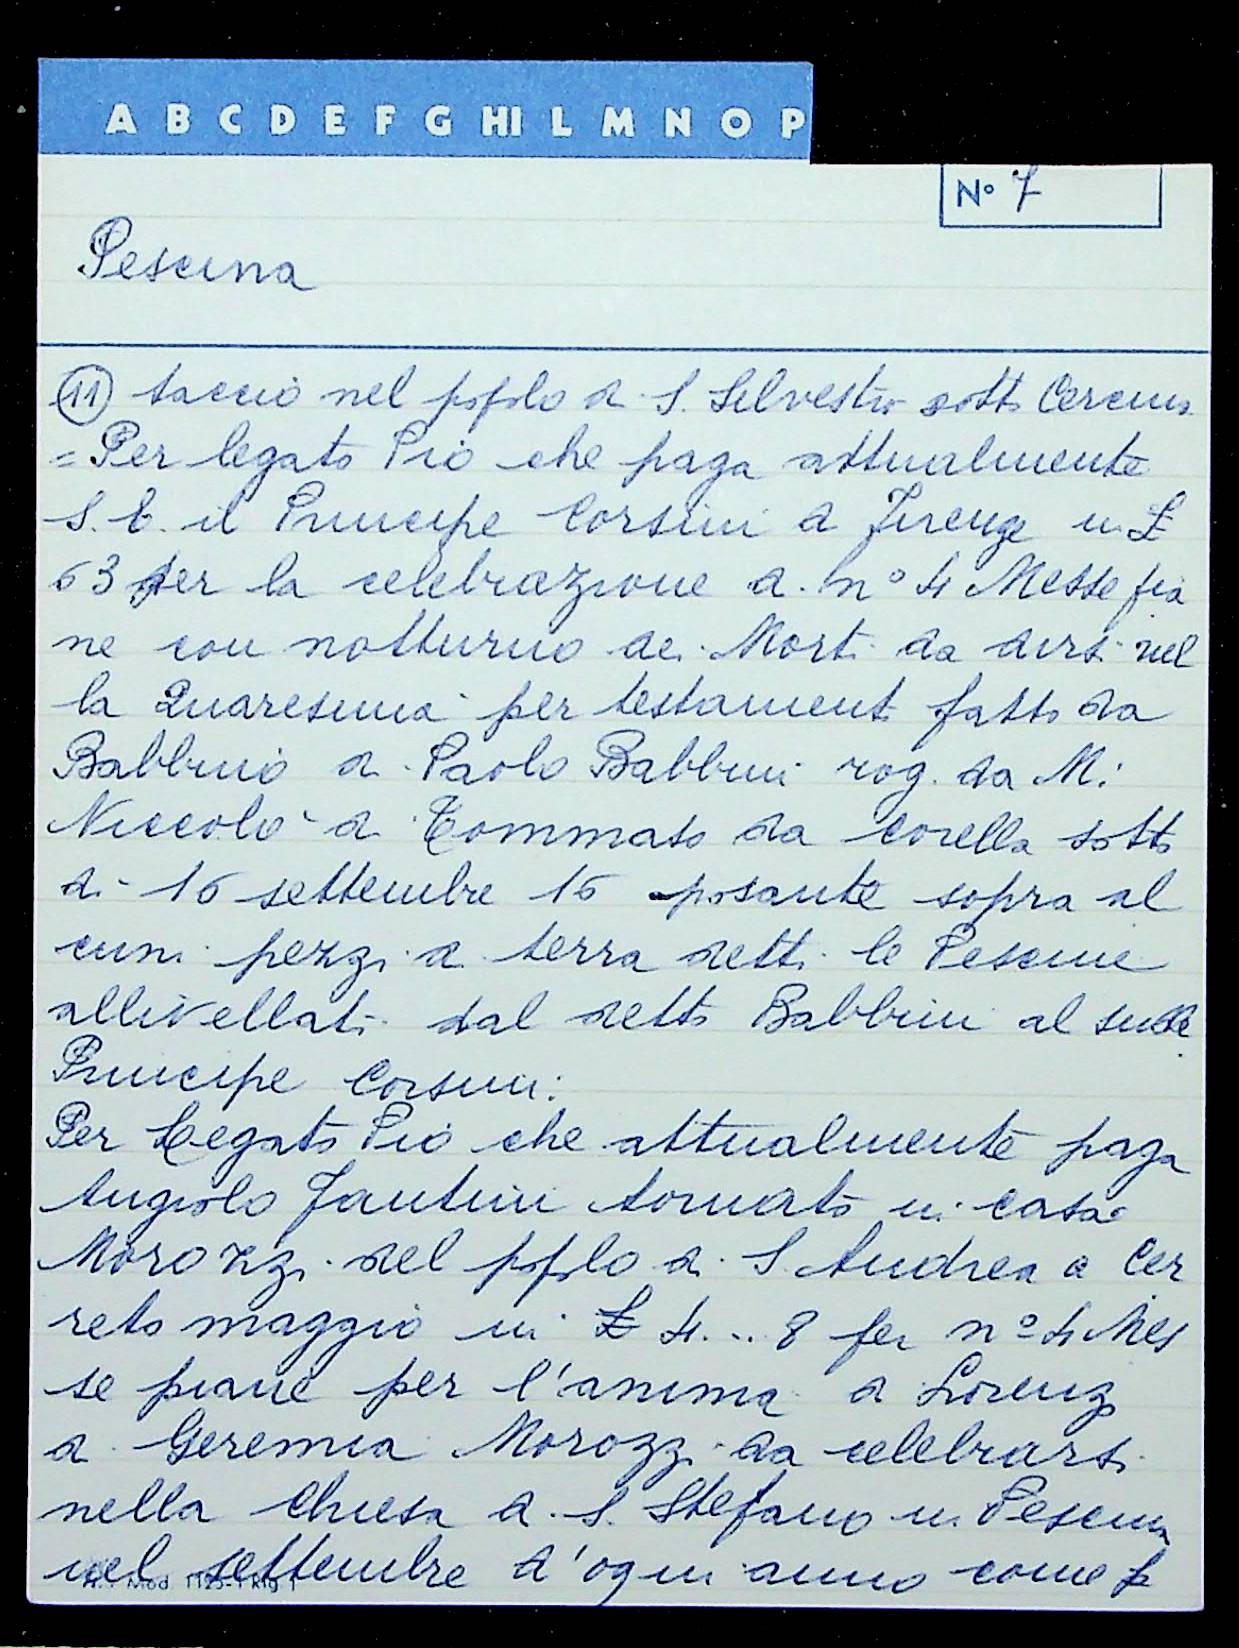 A B C D E F G HI L M N O P
N° 7
Pescina
(11) taccio nel popolo di S. Silvestro sotto Cercina
= Per legato Pio che paga attualmente
S. E. il Principe Corsini di Firenze in £
63 per la celebrazione di n° 4 Messe pia
ne con notturno dei Morti da dirsi nel
la Quaresima per testamento fatto da
Babbino di Paolo Babbini rog. da M:
Niccolò di Tommaso da Corella sotto
dì 16 settembre 16 posante sopra al
cuni pezzi di terra detti le Pescine
allivellati dal detto Babbini al sudde
Principe Corsini:
Per Legato Pio che attualmente paga
Angiolo Fantini tornato in casa
Morozzi del popolo di S. Andrea a Cer
reto maggio in £ 4... 8 per n° 4 Mes
se piane per l'anima di Lorenzo
di Geremia Morozzi da celebrarsi
nella Chiesa di S. Stefano in Pescina
nel settembre d'ogni anno come p
Mod. 1125-1 Rig. 1